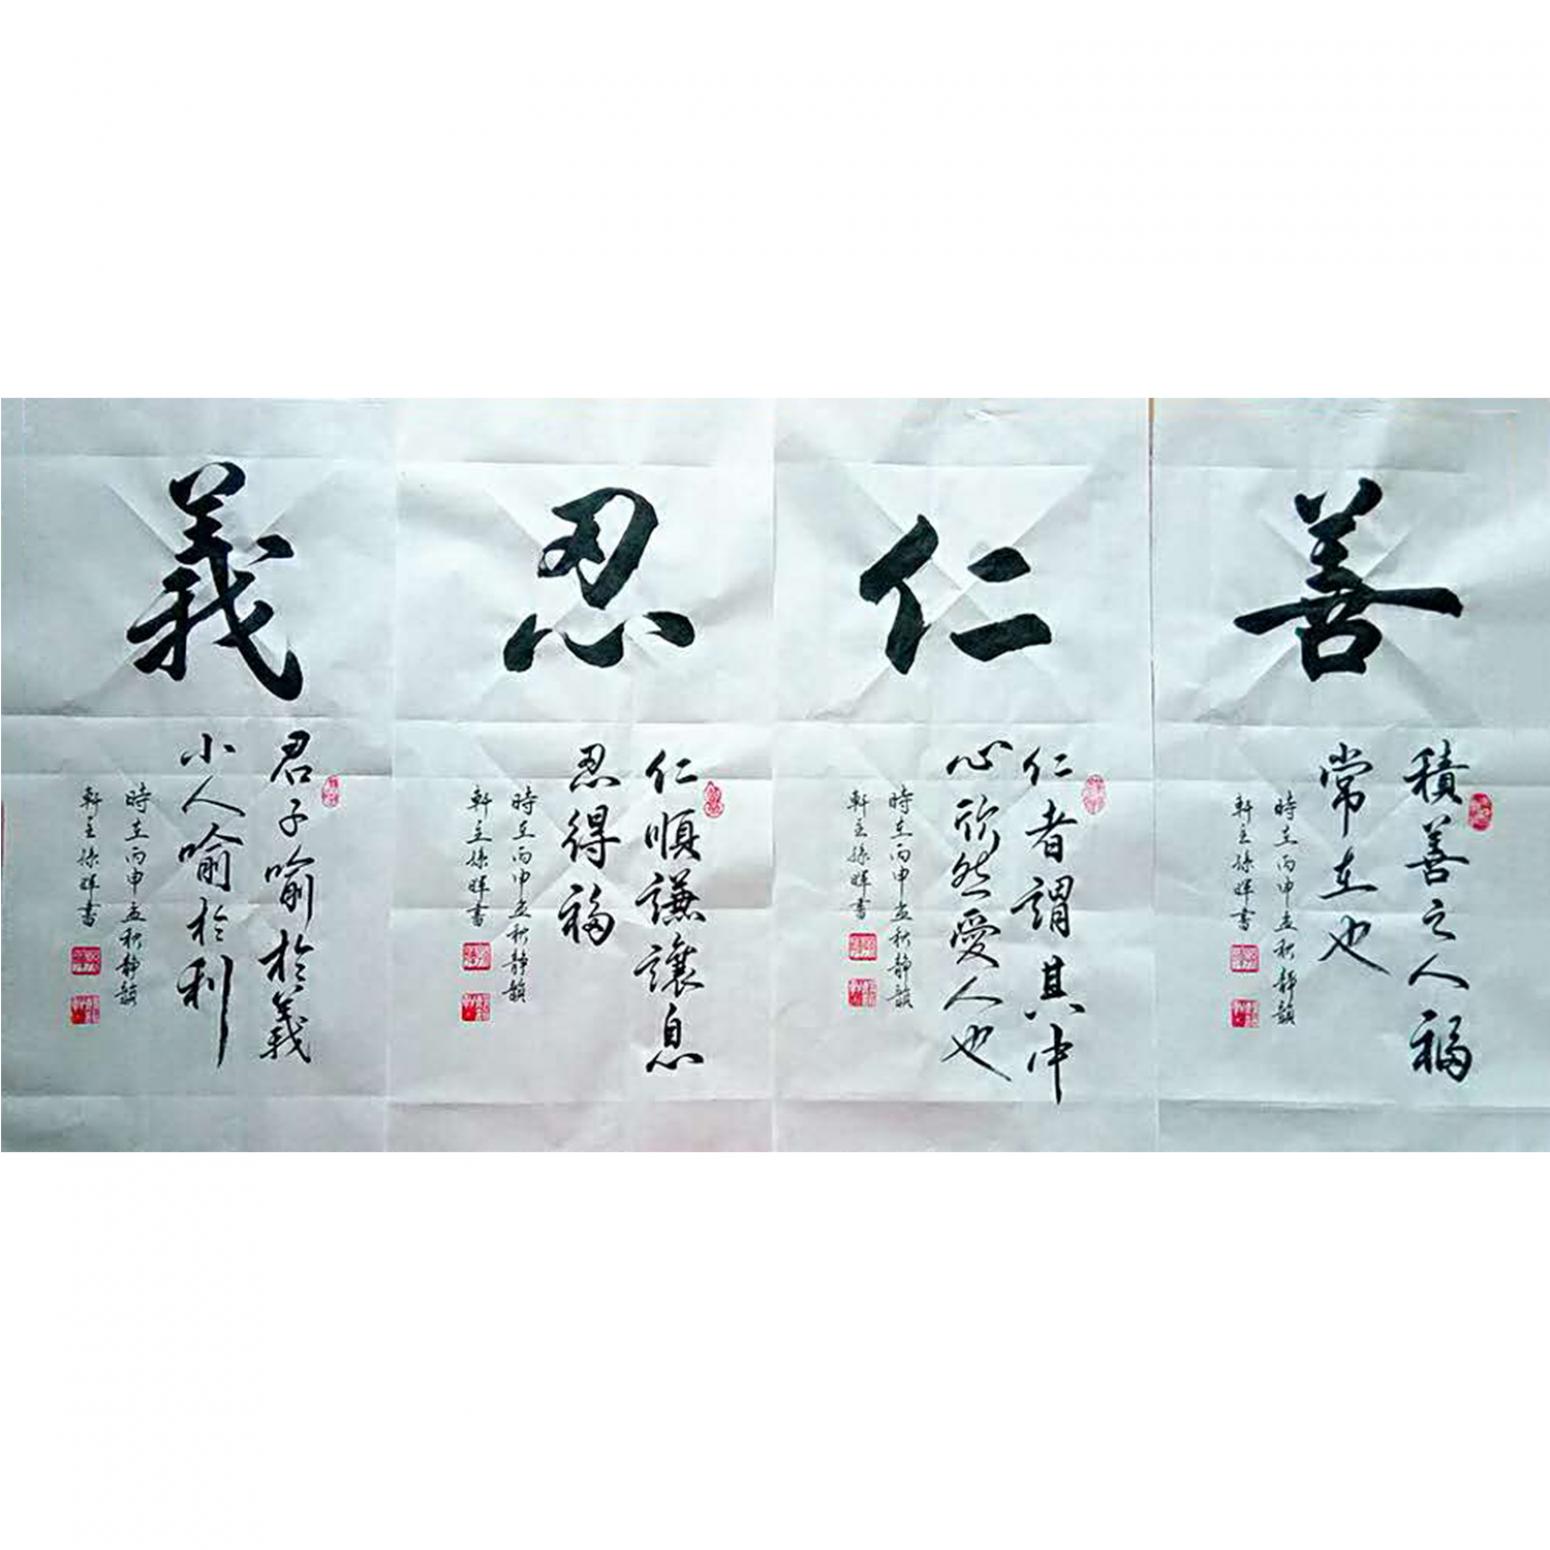 善
積善之人福
常在也
時在丙申孟秋静韻
軒主孫暉書
仁
仁者謂其中
心欣然愛人也
時在丙申孟秋静韻
軒主孫暉書
忍
仁順謙讓息
忍得福
時在丙申孟秋静韻
軒主孫暉書
義
君子喻於義
小人喻於利
時在丙申孟秋静韻
軒主孫暉書